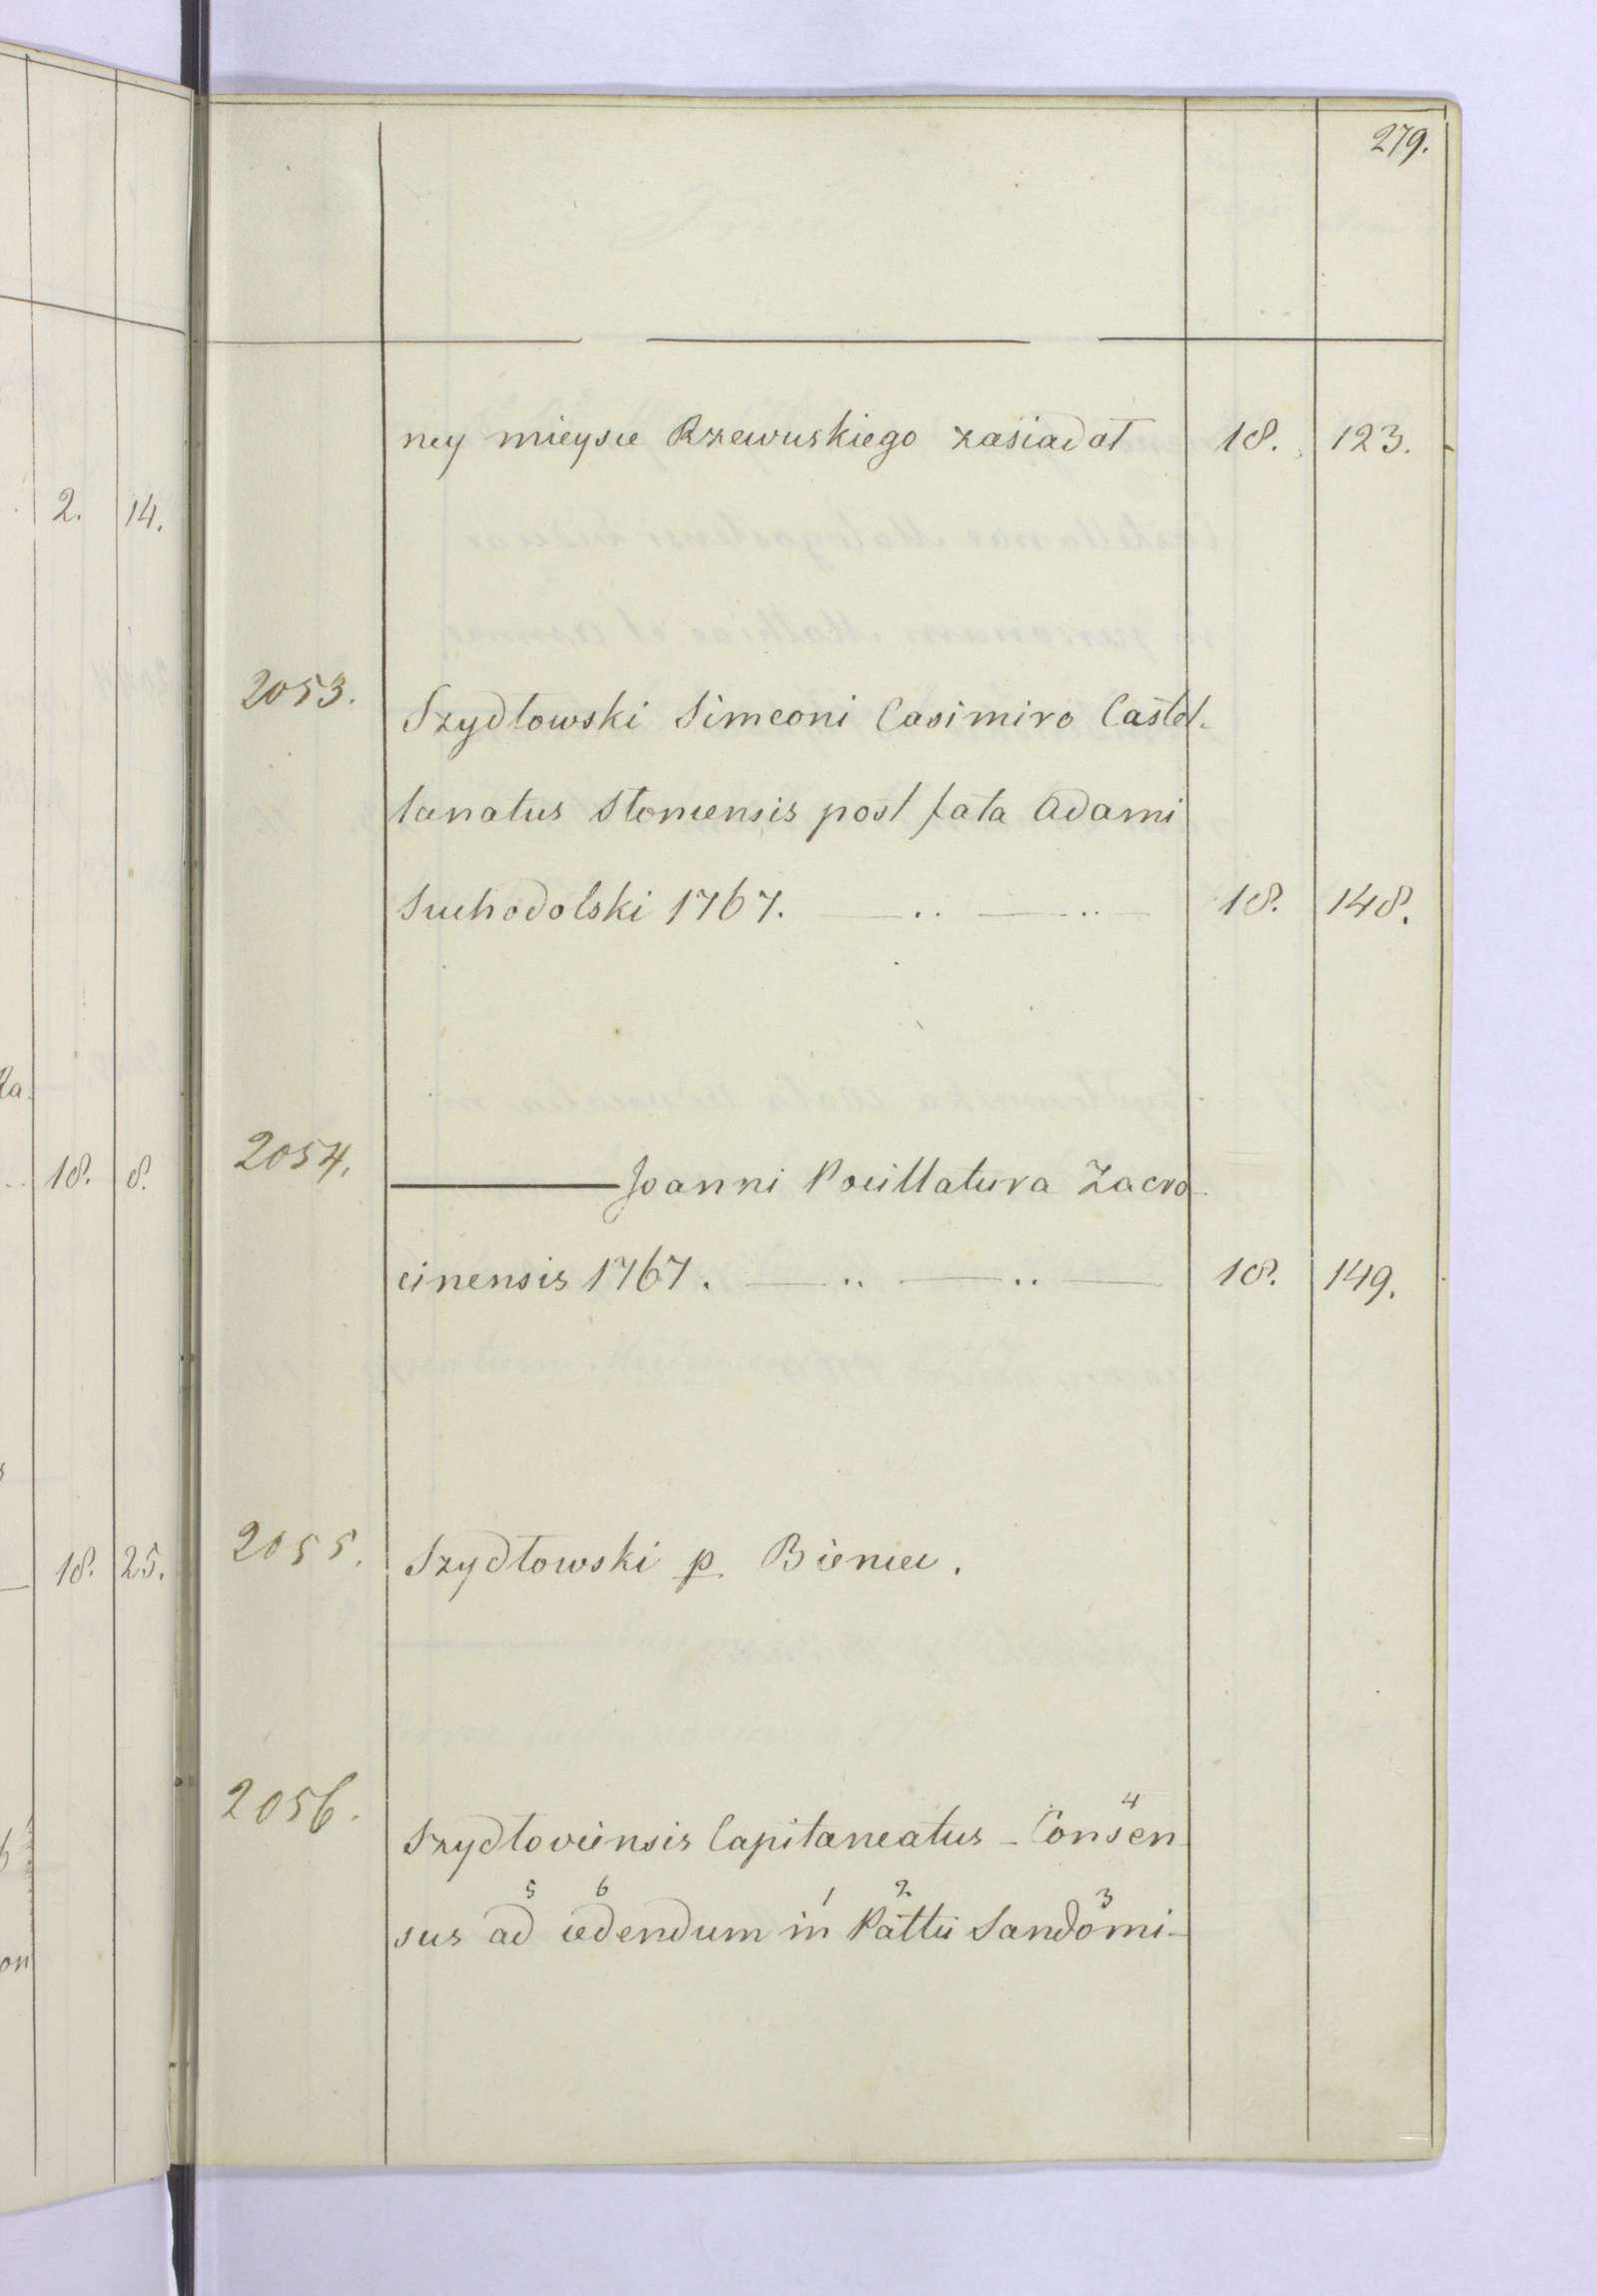 279.
ney mieysce Rzewuskiego zasiadał 18. 123.
2053. Szydłowski Simeoni Casimiro Castel-
lanatus Słonensis post fata Adami
Suchodolski 1767. — .. — .. — 18. 148.
2054. ——— Joanni Pocillatura Zacro-
cinensis 1767. — .. — .. — 18. 149.
2055. Szydłowski p. Bieniec.
2056. Szydłoviensis Capitaneatus - Consen
4
sus ad cedendum in Pattu Sandomi-
5 6 1 2 3
2. 14.
Ra.
18. 8.
18. 25.
on